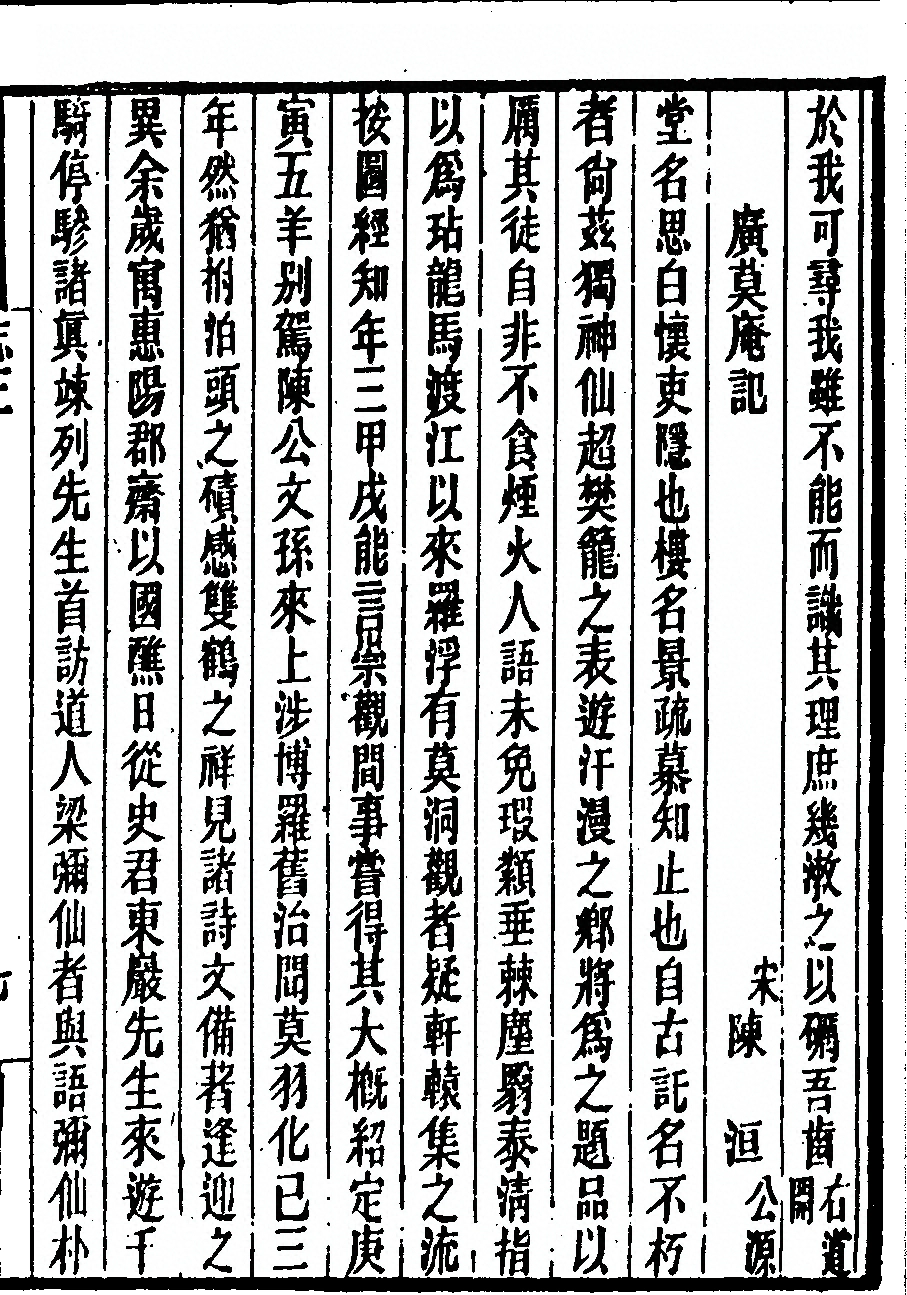 於我可尋我雖不能而識其理庶幾漱之以礪吾齒右道開
廣莫庵記　宋陳　洹公源
堂名思白懷吏隱也樓名景疏慕知止也自古託名不朽
者尚茲獨神仙超樊籠之表遊汗漫之鄉將爲之題品以
厲其徒自非不食煙火人語未免瑕纇垂棘塵翳泰清指
以爲玷龍馬渡江以來羅浮有莫洞觀者疑軒轅集之流
按圖經知年三甲戌能言崇觀間事嘗得其大槪紹定庚
寅五羊别駕陳公文孫來上涉博羅舊治問莫羽化已三
年然猶拊泊頭之磧感雙鶴之祥見諸詩文備著逢迎之
異余歲寓惠陽郡齋以國醮日從史君東巖先生來遊千
騎停驂諸眞竦列先生首訪道人梁彌仙者與語彌仙朴